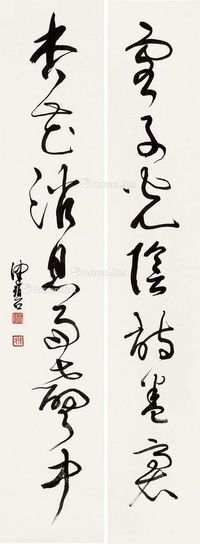 客子光陰詩卷裏
杏花消息雨聲中